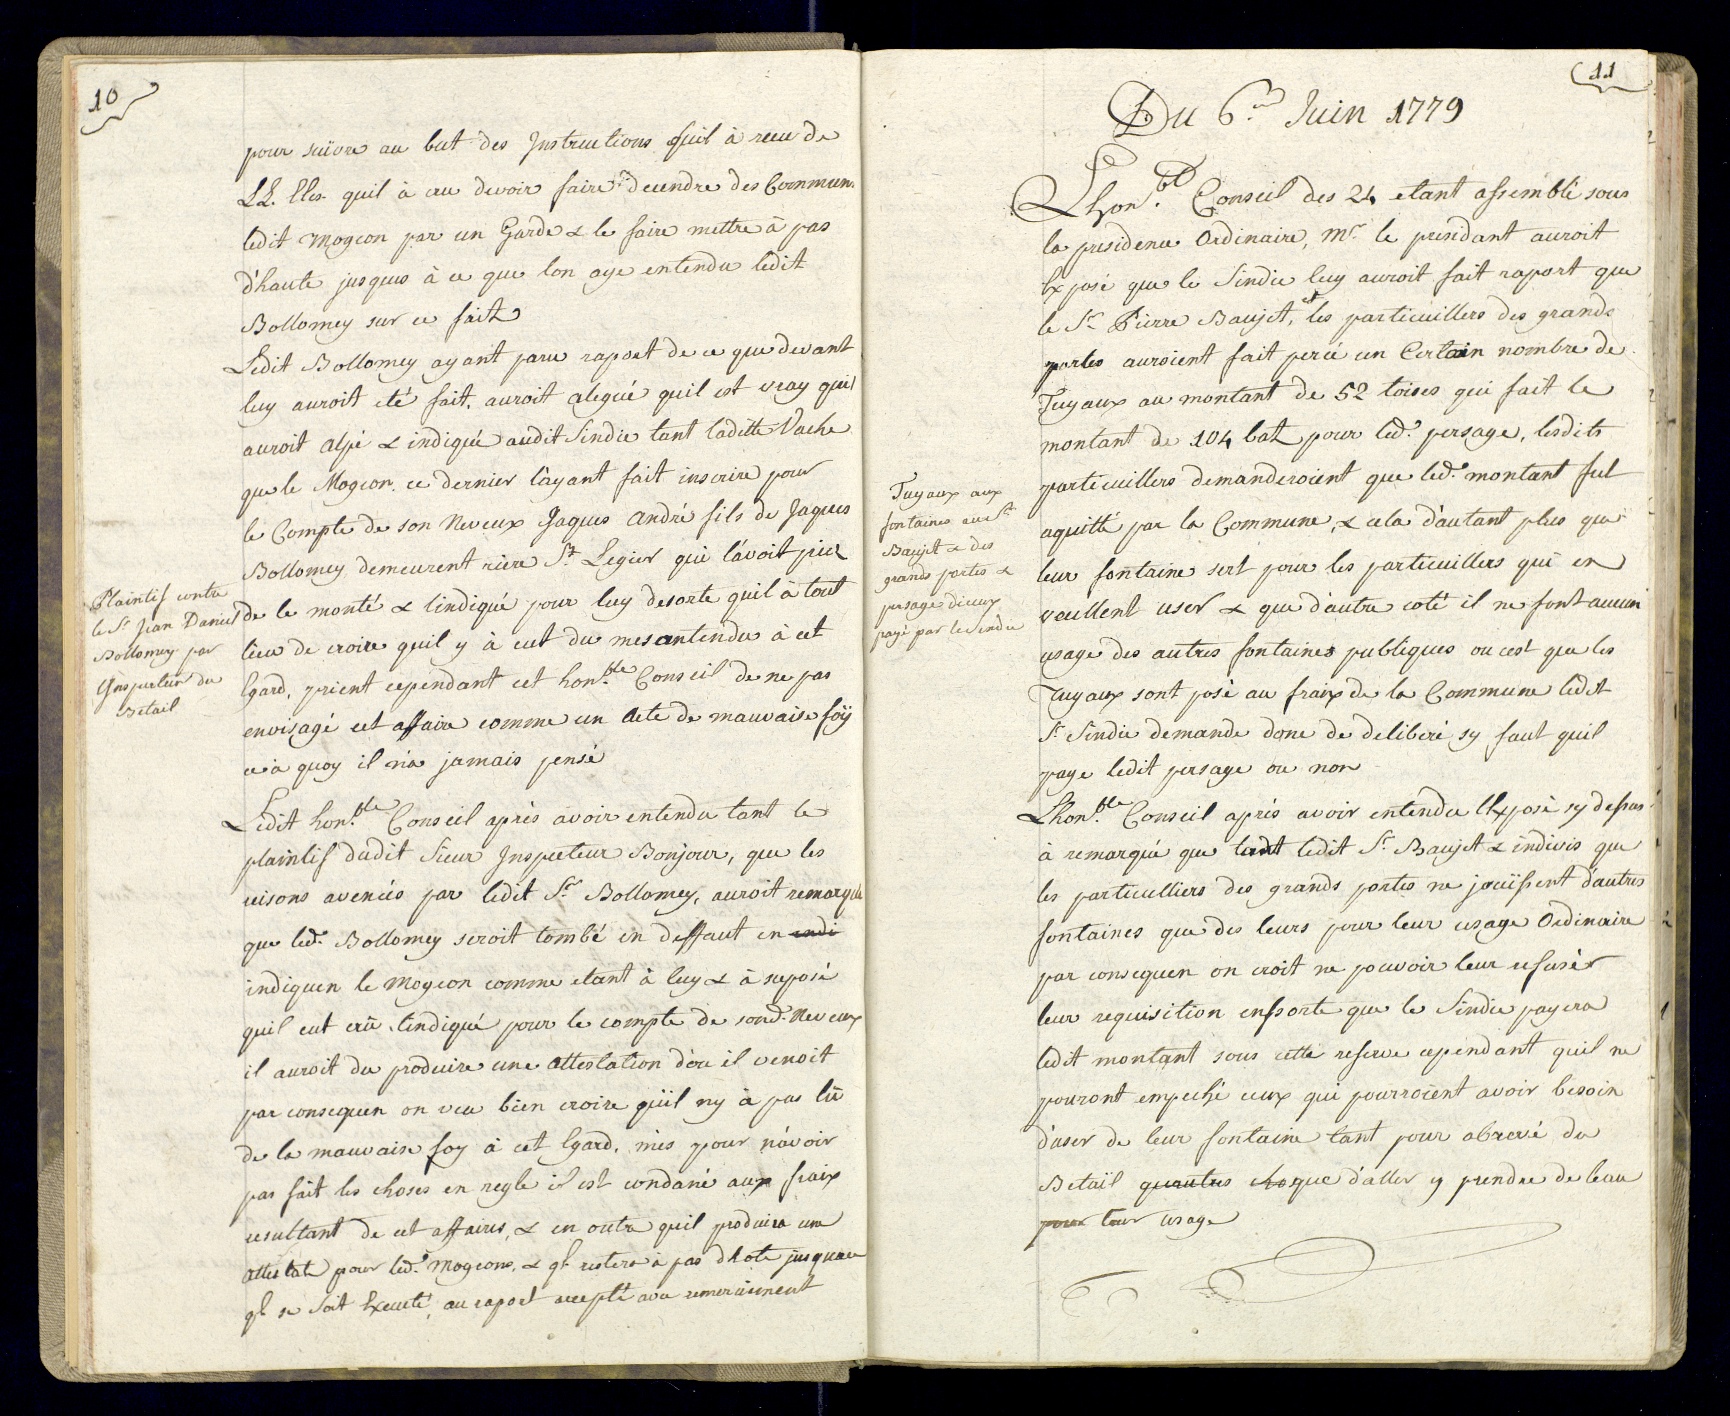 10
pour suivre au but des Instructions quil à receu de
LL. EEes. quil à cru devoir faire decendre des Commun.
ledit Mogeon par un Garde & le faire mettre à pas
d'haute jusques à ce que lon aye entendu ledit
Bollomey sur ce fait
Ledit Bollomey ayant parru raport de ce que devant
luy auroit eté fait, auroit alegué quil est vray quil
auroit alpé & indiqué audit Sindic tant laditte Vache
que le Mogeon, ce dernier layant fait inscrire pour
le Compte de son Neveux Jaques André fils de Jaques
Bollomey demeurent riere St. Legier qui lávoit prié
de le monté & lindiqué pour luy desorte quil à tout
lieu de croire quil y à eut du mesantendu à cet
Egard, prient cependant cet hon.ble Conseil de ne pas
envisagé cet affaire comme un Acte de mauvaise foÿ
ce à quoy il n'a jamais pensé
Plaintif contre
le Sr. Jean Daniel
Bollomey par
Inspecteur du
Betail
Ledit hon.ble Conseil après avoir entendu tant le
plaintif dudit Sieur Inspecteur Bonjour, que les
reisons avencés par ledit Sr. Bollomey, auroit remarqué
que led. Bollomey seroit tombé en deffaut en endi
indiquen le Mogeon comme etant à luy & à suposé
quil eut crû lindiqué pour le compte de sond. Neveux
il auroit du produire une Attestation d'ou il venoit
par consequen on veu bien croire quil ny à pas lû
de la mauvaise foy à cet Egard, mès pour návoir
pas fait les choses en regle il est condané aux fraix
resultant de cet affaires, & en outre quil produira une
Attestats pour led. Mogeons, & ql. restera à pas dhote jusquau
ql. se soit Execuité, au raport accepté avec remerciement
11
Du 6.me Juin 1779
Lhon.ble Conseil des 24 etant assemblé sous
la presidence Ordinaire, Mr. le presidant auroit
Exposé que le Sindic luy auroit fait raport que
le Sr. Pierre Baujet, et les particuilliers des grands
portes auroient fait percé un Certain nombre de
Tuyaux au montant de 52 toises qui fait le
montant de 104 batz pour led. persage, lesdits
particuilliers demanderoient que led. montant fut
aquitté par la Commune, & cela d'autant plus que
leur fontaine sert pour les particuilliers qui en
veullent user & que d'autre coté il ne font aucun
usage des autres fontaines publiques ou cést que les
Tuyaux sont posé au fraix de la Commune ledit
Sr. Sindic demande donc de deliberé sy faut quil
paye ledit persage ou non
Tuyaux aux
fontaines au Sr.
Baujet & des
grands portes &
persage diceux
payé par le Sindic
Lhon.ble Conseil après avoir entendu lExposé sy dessus
à remarqué que tant ledit Sr. Baujet & indivis que
les particulliers des grands portes ne jouissent d'autres
fontaines que des leurs pour leur usage Ordinaire
par consequen on croit ne pouvoir leur refusér
leur requisition ensorte que le Sindic payera
ledit montant sous cette reserve cependant quil ne
pouront empeché ceux qui pourroient avoir besoin
d'user de leur fontaine tant pour abrevé du
Betail quautres choque d'aller y prendre de leau
pour leur usage